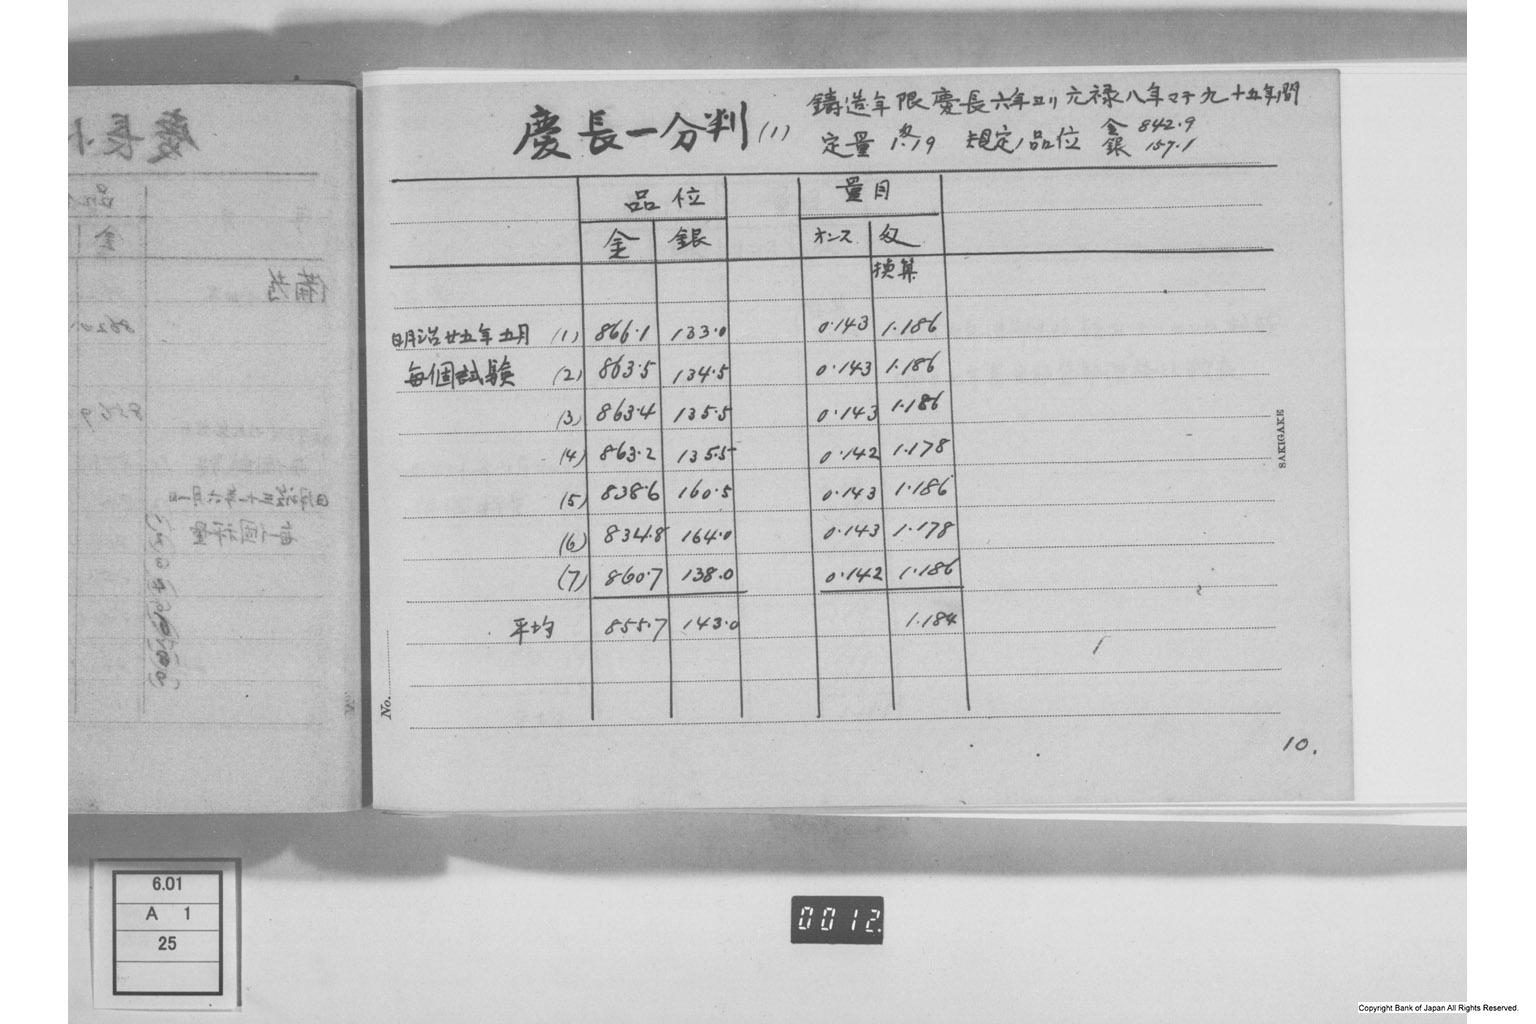 慶長一分判 (1)
鋳造年限慶長六年ヨリ元禄八年マデ九十五年間
定量 匁1.19 規定ノ品位 金 842.9
銀 157.1
品位 量目
金 銀 オンス 匁
換算
明治廿五年五月 (1) 866.1 133.0 0.143 1.186
毎個試験 (2) 863.5 134.5 0.143 1.186
(3) 863.4 135.5 0.143 1.186
(4) 863.2 135.5 0.142 1.178
(5) 838.6 160.5 0.143 1.186
(6) 834.8 164.0 0.143 1.178
(7) 860.7 138.0 0.142 1.186
平均 855.7 143.0 1.184
No.
SAKIGAKE
10.
6.01
A 1
25
0012
Copyright Bank of Japan All Rights Reserved.